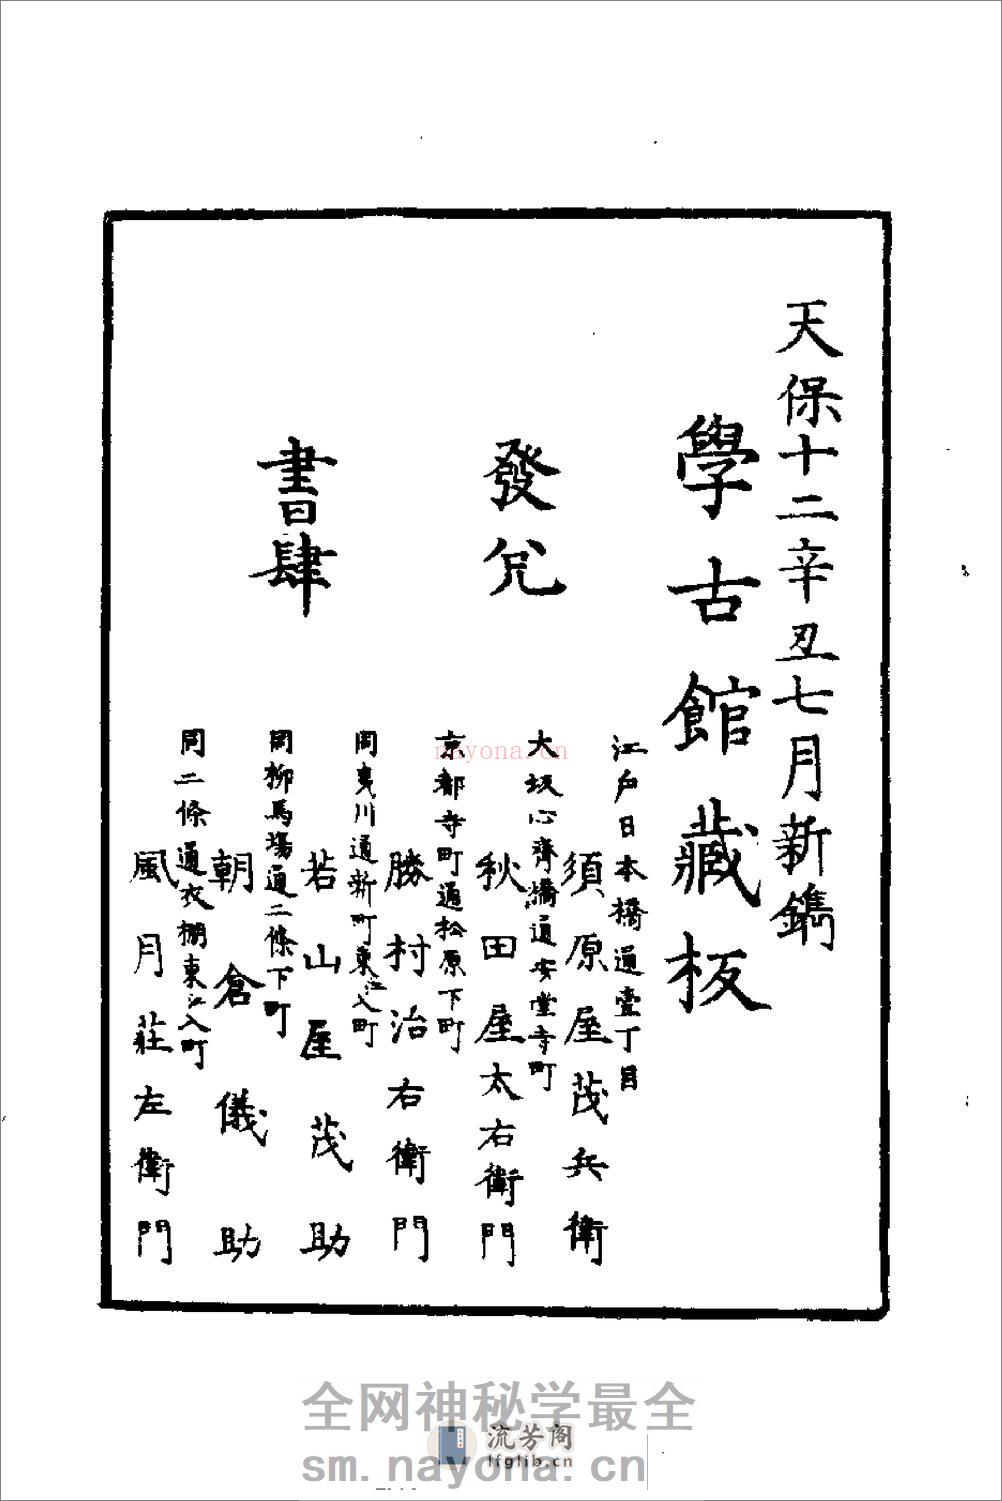 天保十二辛丑七月新鐫
學古館藏板
發兌
書肆
江戸日本橋通壹丁目
須原屋茂兵衛
大坂心齋橋通安堂寺町
秋田屋太右衛門
京都寺町通松原下町
勝村治右衛門
同夷川通新町東江入町
若山屋茂助
同柳馬場通二條下町
朝倉儀助
同二條通衣棚東江入町
風月莊左衛門
nayona.cn
全网神秘学最全
流芳阁
lfglib.cn
sm.nayona.cn